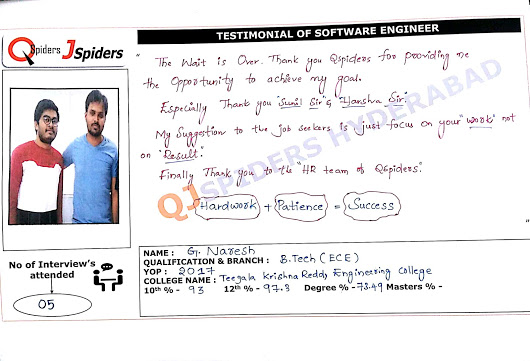 TESTIMONIAL OF SOFTWARE ENGINEER
QSpiders JSpiders
"The Wait is Over. Thank you Qspiders for providing me
the Opportunity to achieve my goal.
Especially Thank you "Sunil Sir" & "Hanshva Sir".
My Suggestion to the job seekers is just focus on your "work" not
on "Result".
Finally Thank you to the "HR team of Qspiders".
Hardwork + Patience = Success
QJSPIDERS HYDERABAD
No of Interview's
attended
05
NAME : G. Naresh
QUALIFICATION & BRANCH : B.Tech (ECE)
YOP : 2017
COLLEGE NAME : Teegala Krishna Reddy Engineering College
10th % - 93 12th % - 97.3 Degree % - 73.49 Masters % -